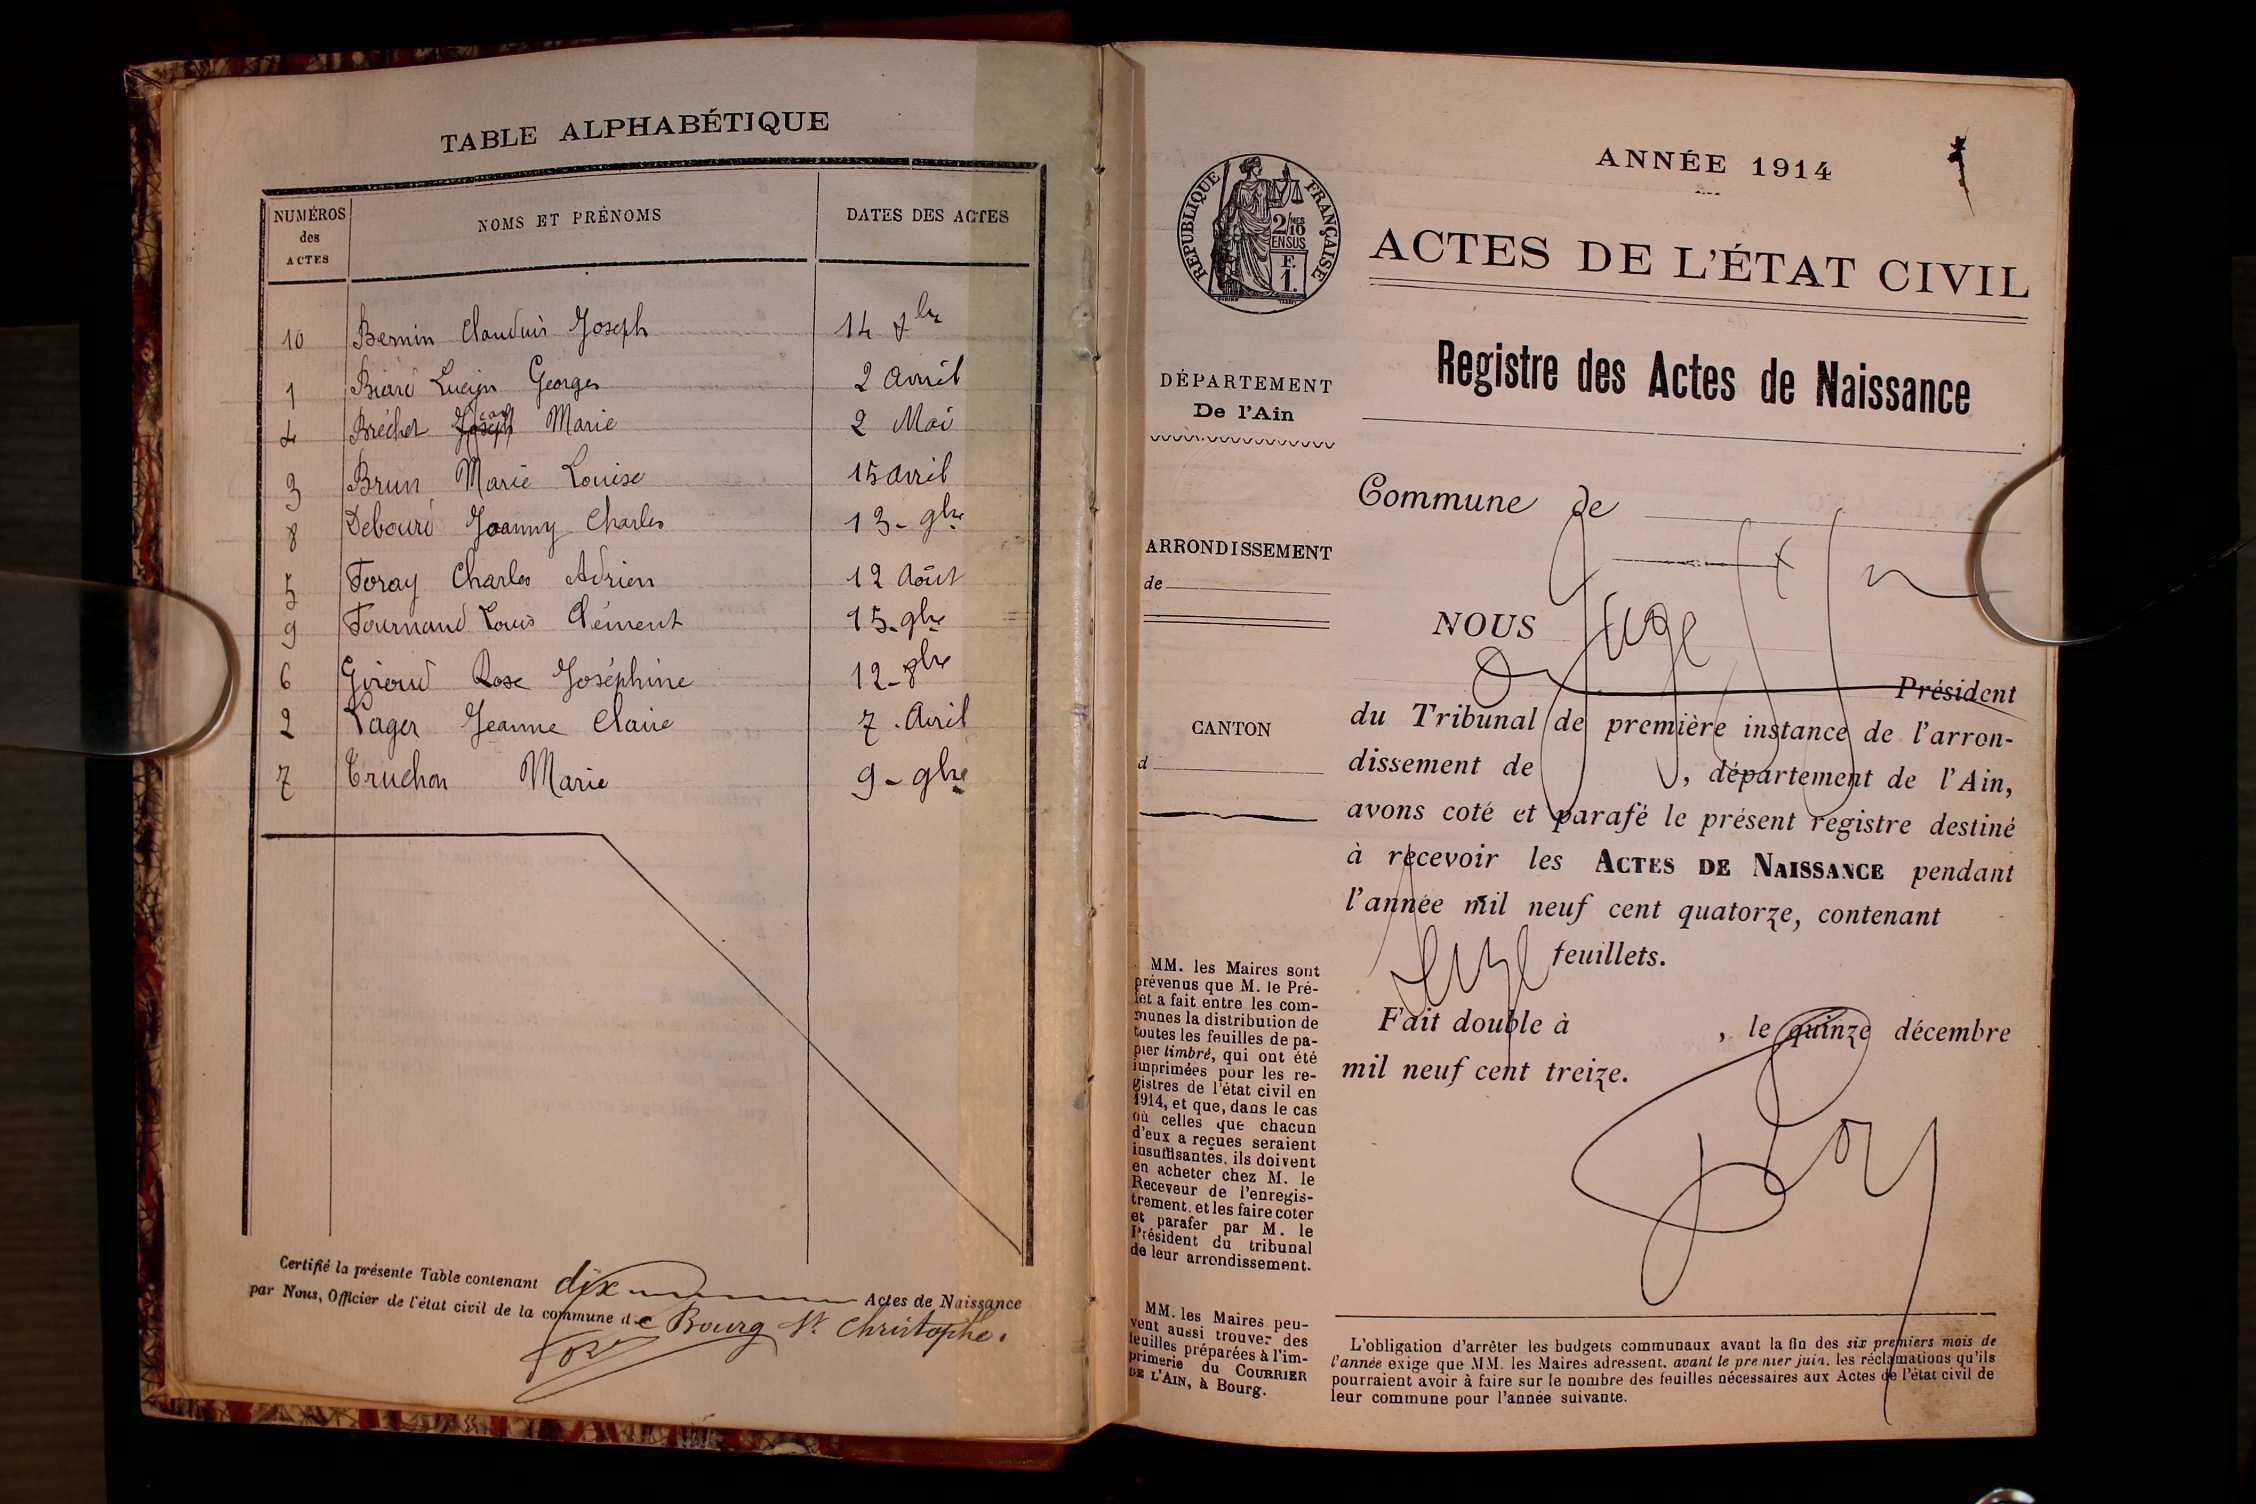 TABLE ALPHABÉTIQUE
NUMÉROS des ACTES
NOMS ET PRÉNOMS
DATES DES ACTES
10 Bernin Claudius Joseph 14 xbre
1 Biard Lucien Georges 2 avril
4 Bréchet Jean Marie 2 Mai
3 Brun Marie Louise 15 avril
8 Debourd Joanny Charles 13 - 9bre
5 Foray Charles Adrien 12 Août
9 Fournand Louis Clément 15 - 9bre
6 Giroud Rose Joséphine 12 - 8bre
2 Lager Jeanne Claire 7 . Avril
7 Truchon Marie 9 - 9bre
Certifié la présente Table contenant dix Actes de Naissance
par Nous, Officier de l'état civil de la commune de Bourg St. Christophe.
ANNÉE 1914
RÉPUBLIQUE FRANÇAISE
2/10 MES
EN SUS
F.
1.
ACTES DE L'ÉTAT CIVIL
Registre des Actes de Naissance
DÉPARTEMENT
De l'Ain
ARRONDISSEMENT
de
CANTON
d
Commune de
NOUS Juge
Président
du Tribunal de première instance de l'arron-
dissement de , département de l'Ain,
avons coté et parafé le présent registre destiné
à recevoir les ACTES DE NAISSANCE pendant
l'année mil neuf cent quatorze, contenant
feuillets.
Fait double à , le quinze décembre
mil neuf cent treize.
MM. les Maires sont
prévenus que M. le Pré-
fet a fait entre les com-
munes la distribution de
toutes les feuilles de pa-
pier timbré, qui ont été
imprimées pour les re-
gistres de l'état civil en
1914, et que, dans le cas
où celles que chacun
d'eux a reçues seraient
insuffisantes, ils doivent
en acheter chez M. le
Receveur de l'enregis-
trement, et les faire coter
et parafer par M. le
Président du tribunal
de leur arrondissement.
MM. les Maires peu-
vent aussi trouver des
feuilles préparées à l'im-
primerie du COURRIER
DE L'AIN, à Bourg.
L'obligation d'arrêter les budgets communaux avant la fin des six premiers mois de
l'année exige que MM. les Maires adressent, avant le premier juin, les réclamations qu'ils
pourraient avoir à faire sur le nombre des feuilles nécessaires aux Actes de l'état civil de
leur commune pour l'année suivante.